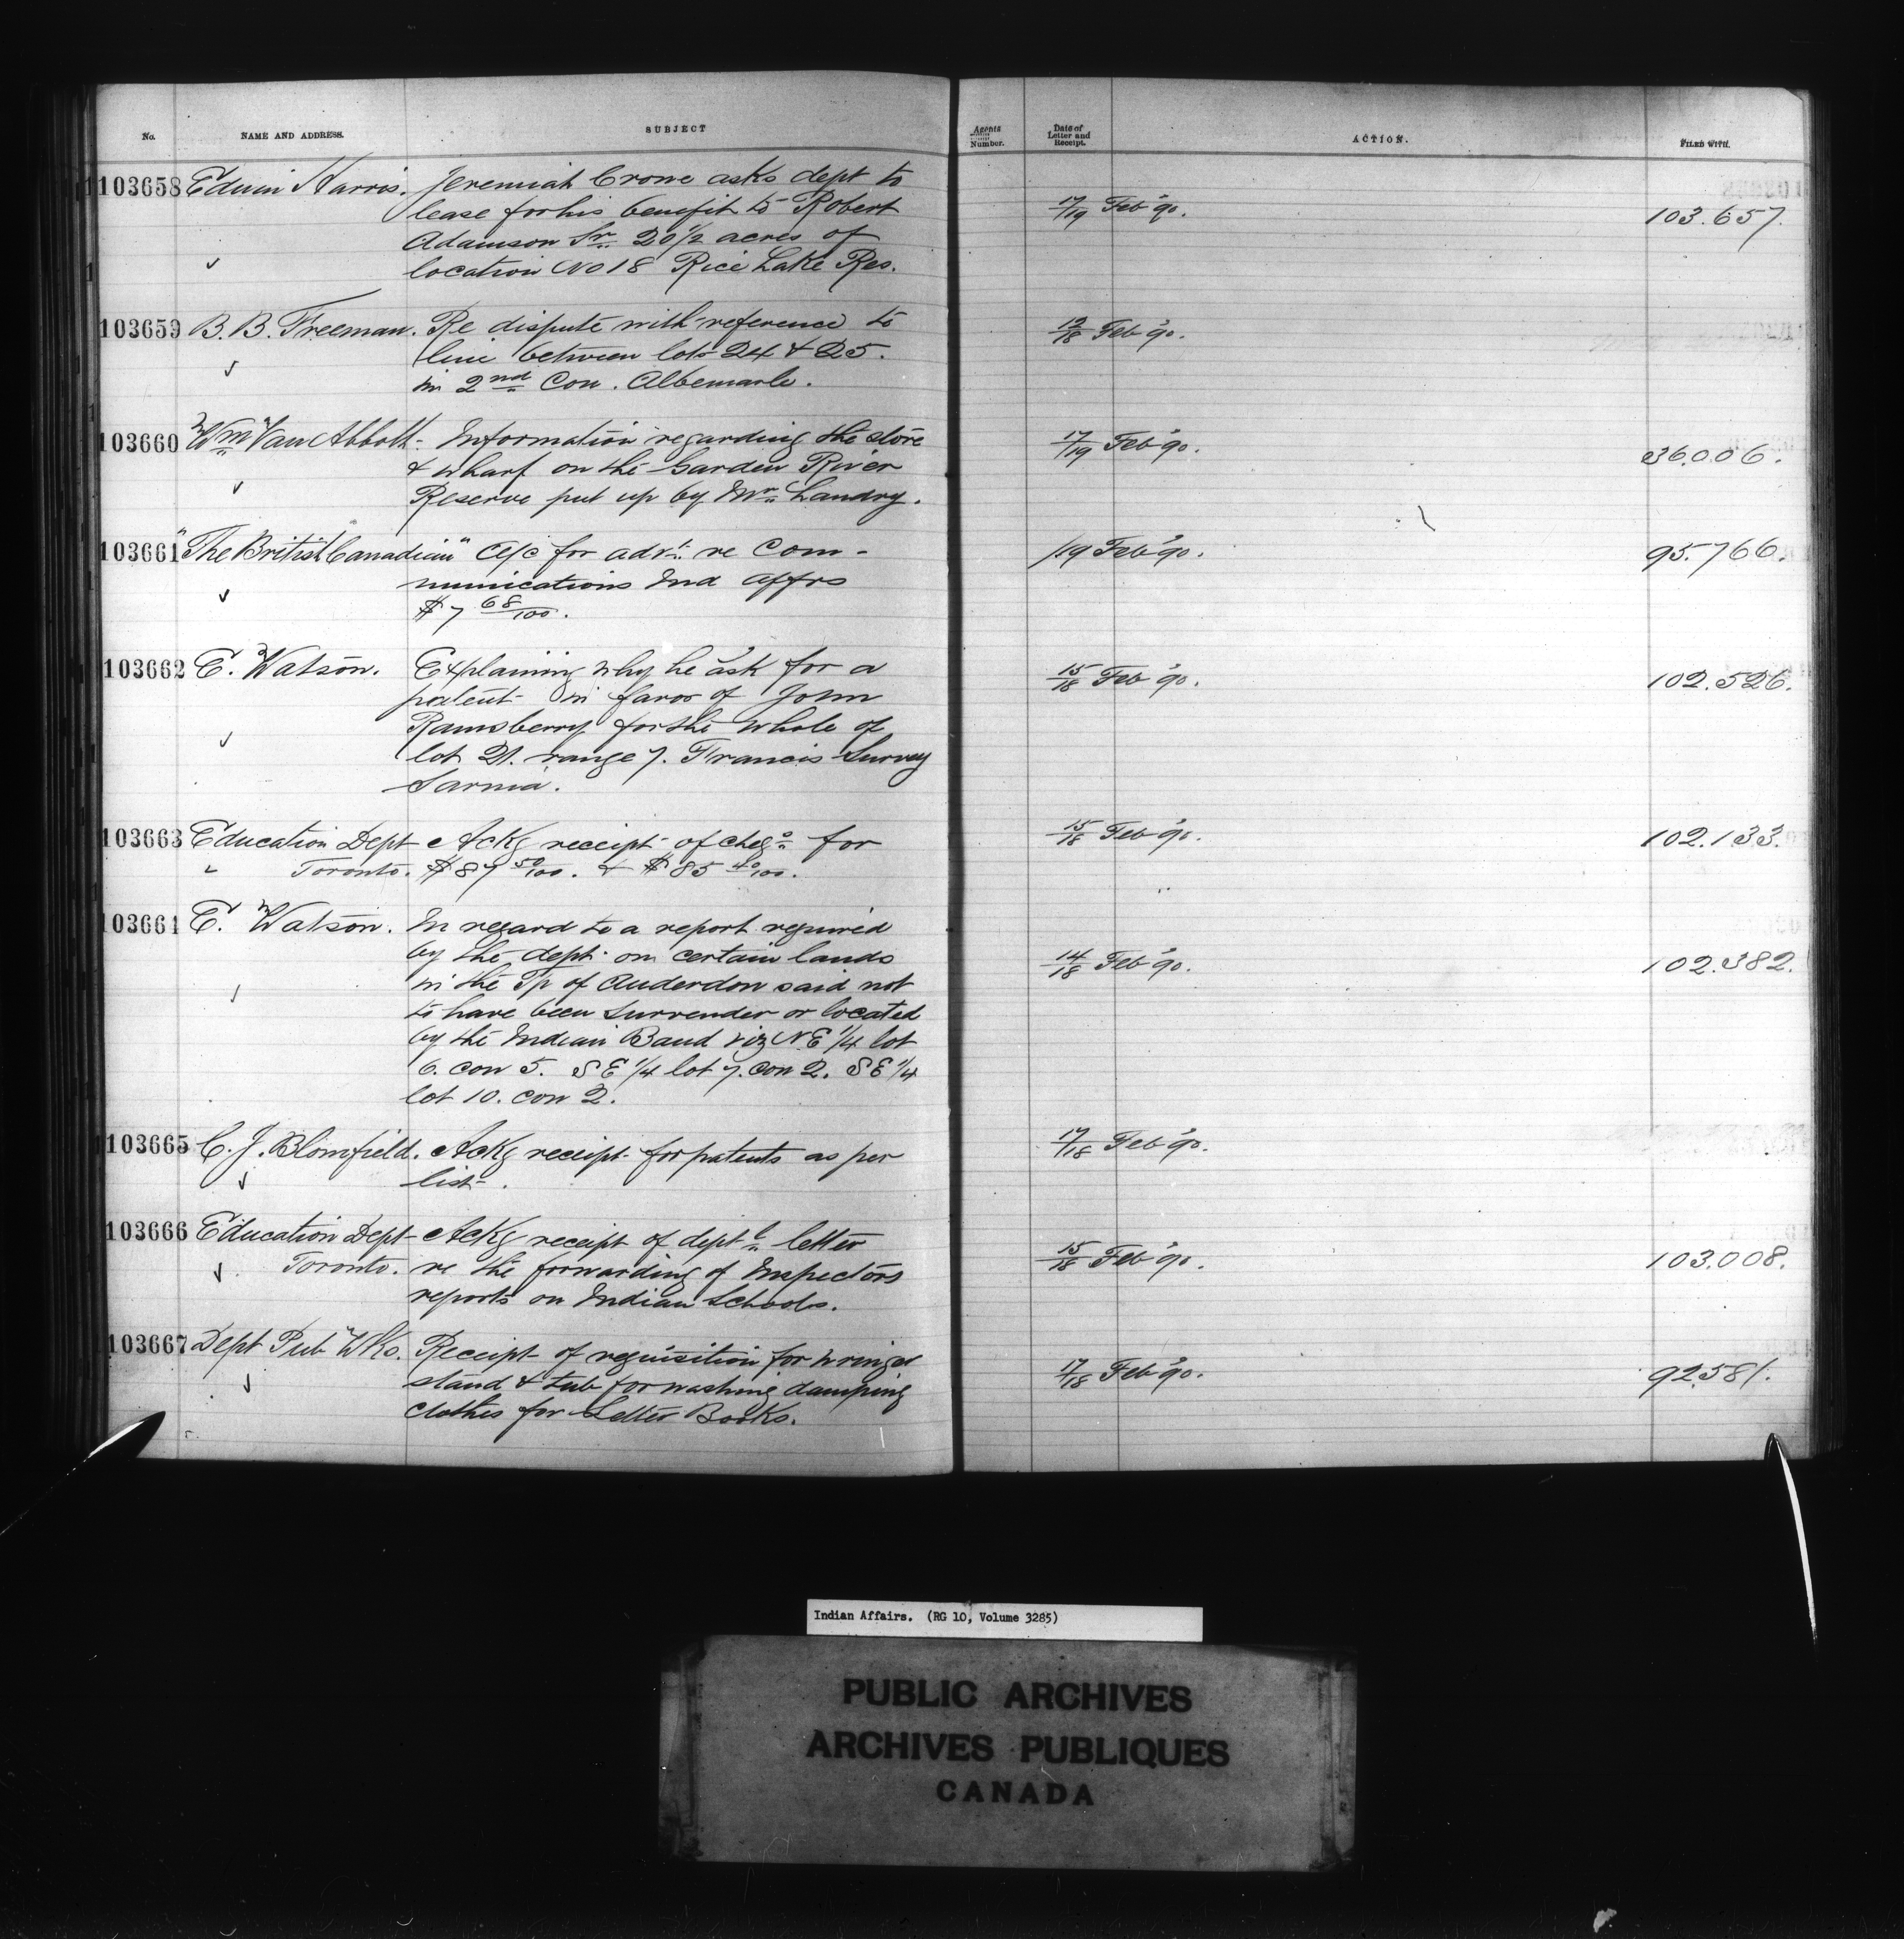 No. NAME AND ADDRESS. SUBJECT Agents Number. Date of Letter and Receipt. ACTION. FILED WITH.
103658 Edwin Harris. Jeremiah Crowe asks dept to
lease for his benefit to Robert 17/19 Feb '90. 103.657.
Adamson Sr. 20 1/2 acres of
location No 18 Rice Lake Res.
103659 B. B. Freeman. Re dispute with reference to 12/18 Feb '90.
line between lots 24 & 25.
in 2nd Con. Albemarle.
103660 Wm Van Abbott - Information regarding the store 17/19 Feb '90. 36.006.
& wharf on the Garden River
Reserve put up by Mr. Landry.
103661 "The British Canadian" a/c for advt. re Com- /19 Feb '90. 95.766.
munications Ind Affrs
$7 68/100.
103662 E. Watson. Explaining why he ask for a 15/18 Feb '90. 102.526.
patent in favor of John
Ramsberry for the whole of
lot 21. range 7. Francis Survey
Sarnia.
103663 Education Dept Ackg receipt of cheqs for 15/18 Feb '90. 102.133.
Toronto. $87 50/100. & $85 40/100.
103664 E. Watson. In regard to a report required
by the dept. on certain lands 14/18 Feb '90. 102.382.
in the Tp of Anderdon said not
to have been surrender or located
by the Indian Band viz N.E 1/4 lot
6. con 5. S E 1/4 lot 7. con 2. S E 1/4
lot 10. con 2.
103665 C. J. Blomfield. Ackg receipt for patents as per 17/18 Feb '90.
list.
103666 Education Dept Ackg receipt of deptl letter
Toronto. re the forwarding of Inspectors 15/18 Feb '90. 103.008.
reports on Indian Schools.
103667 Dept Pub Wks. Receipt of requisition for wringer
stand & tub for washing damping 17/18 Feb '90. 92.581.
clothes for Letter Books.
Indian Affairs. (RG 10, Volume 3285)
PUBLIC ARCHIVES
ARCHIVES PUBLIQUES
CANADA